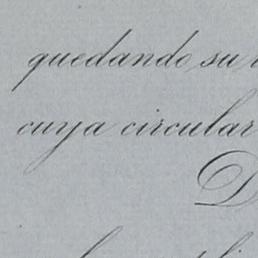 quedando su
cuya circular
D